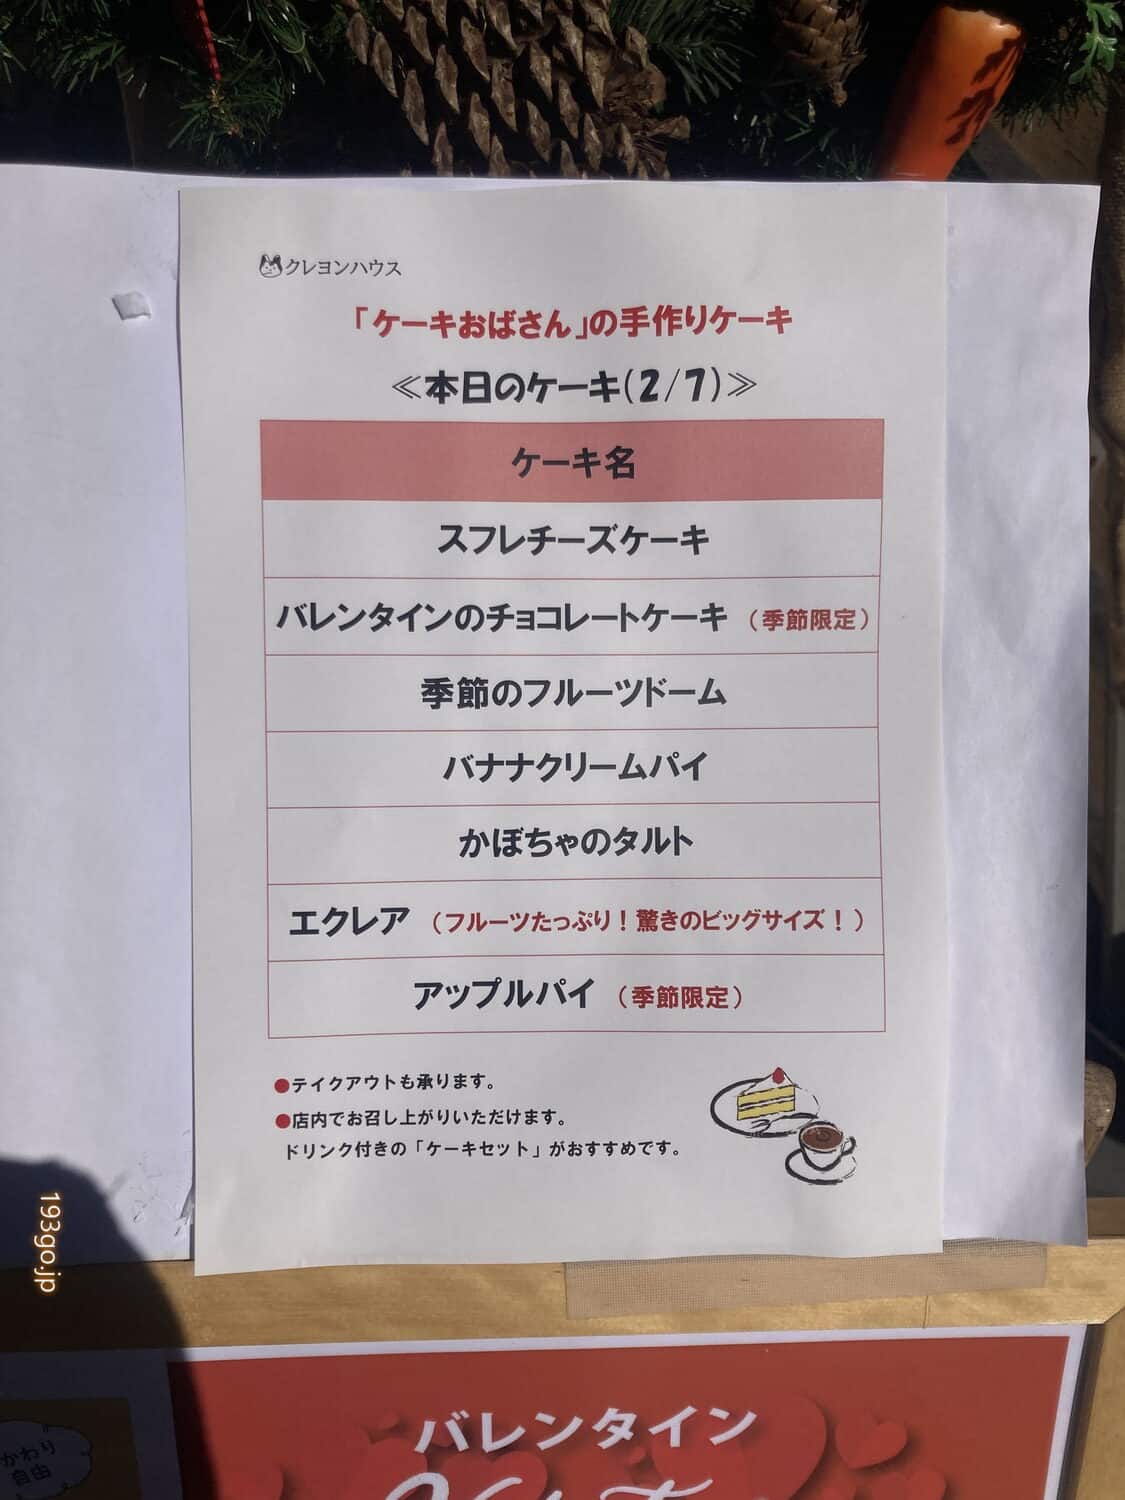 クレヨンハウス
「ケーキおばさん」の手作りケーキ
≪本日のケーキ(2/7)≫
ケーキ名
スフレチーズケーキ
バレンタインのチョコレートケーキ（季節限定）
季節のフルーツドーム
バナナクリームパイ
かぼちゃのタルト
エクレア（フルーツたっぷり！驚きのビッグサイズ！）
アップルパイ（季節限定）
●テイクアウトも承ります。
●店内でお召し上がりいただけます。
ドリンク付きの「ケーキセット」がおすすめです。
193go.jp
かわり
自由
バレンタイン